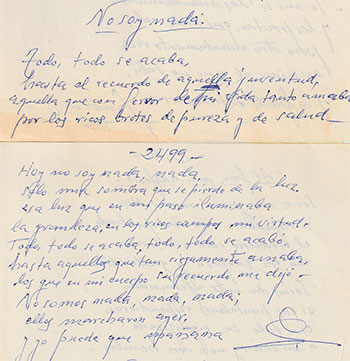 No soy nada.
Todo, todo se acaba,
hasta el recuerdo de aquella juventud,
aquella que con fervor de mi vida tanto amaba
por los ricos brotes de pureza y de salud
- 2499 -
Hoy no soy nada, nada,
sólo una sombra que se pierde de la luz.
esa luz que en mi paso iluminaba
la grandeza, en los ricos campos mi virtud.
Todo, todo se acaba, todo, todo se acabó,
hasta aquellos que tan ciegamente amaba,
los que en mi cuerpo su recuerdo me dejó -
No somos nada, nada, nada;
ellos marcharon ayer,
y yo puede que mañana